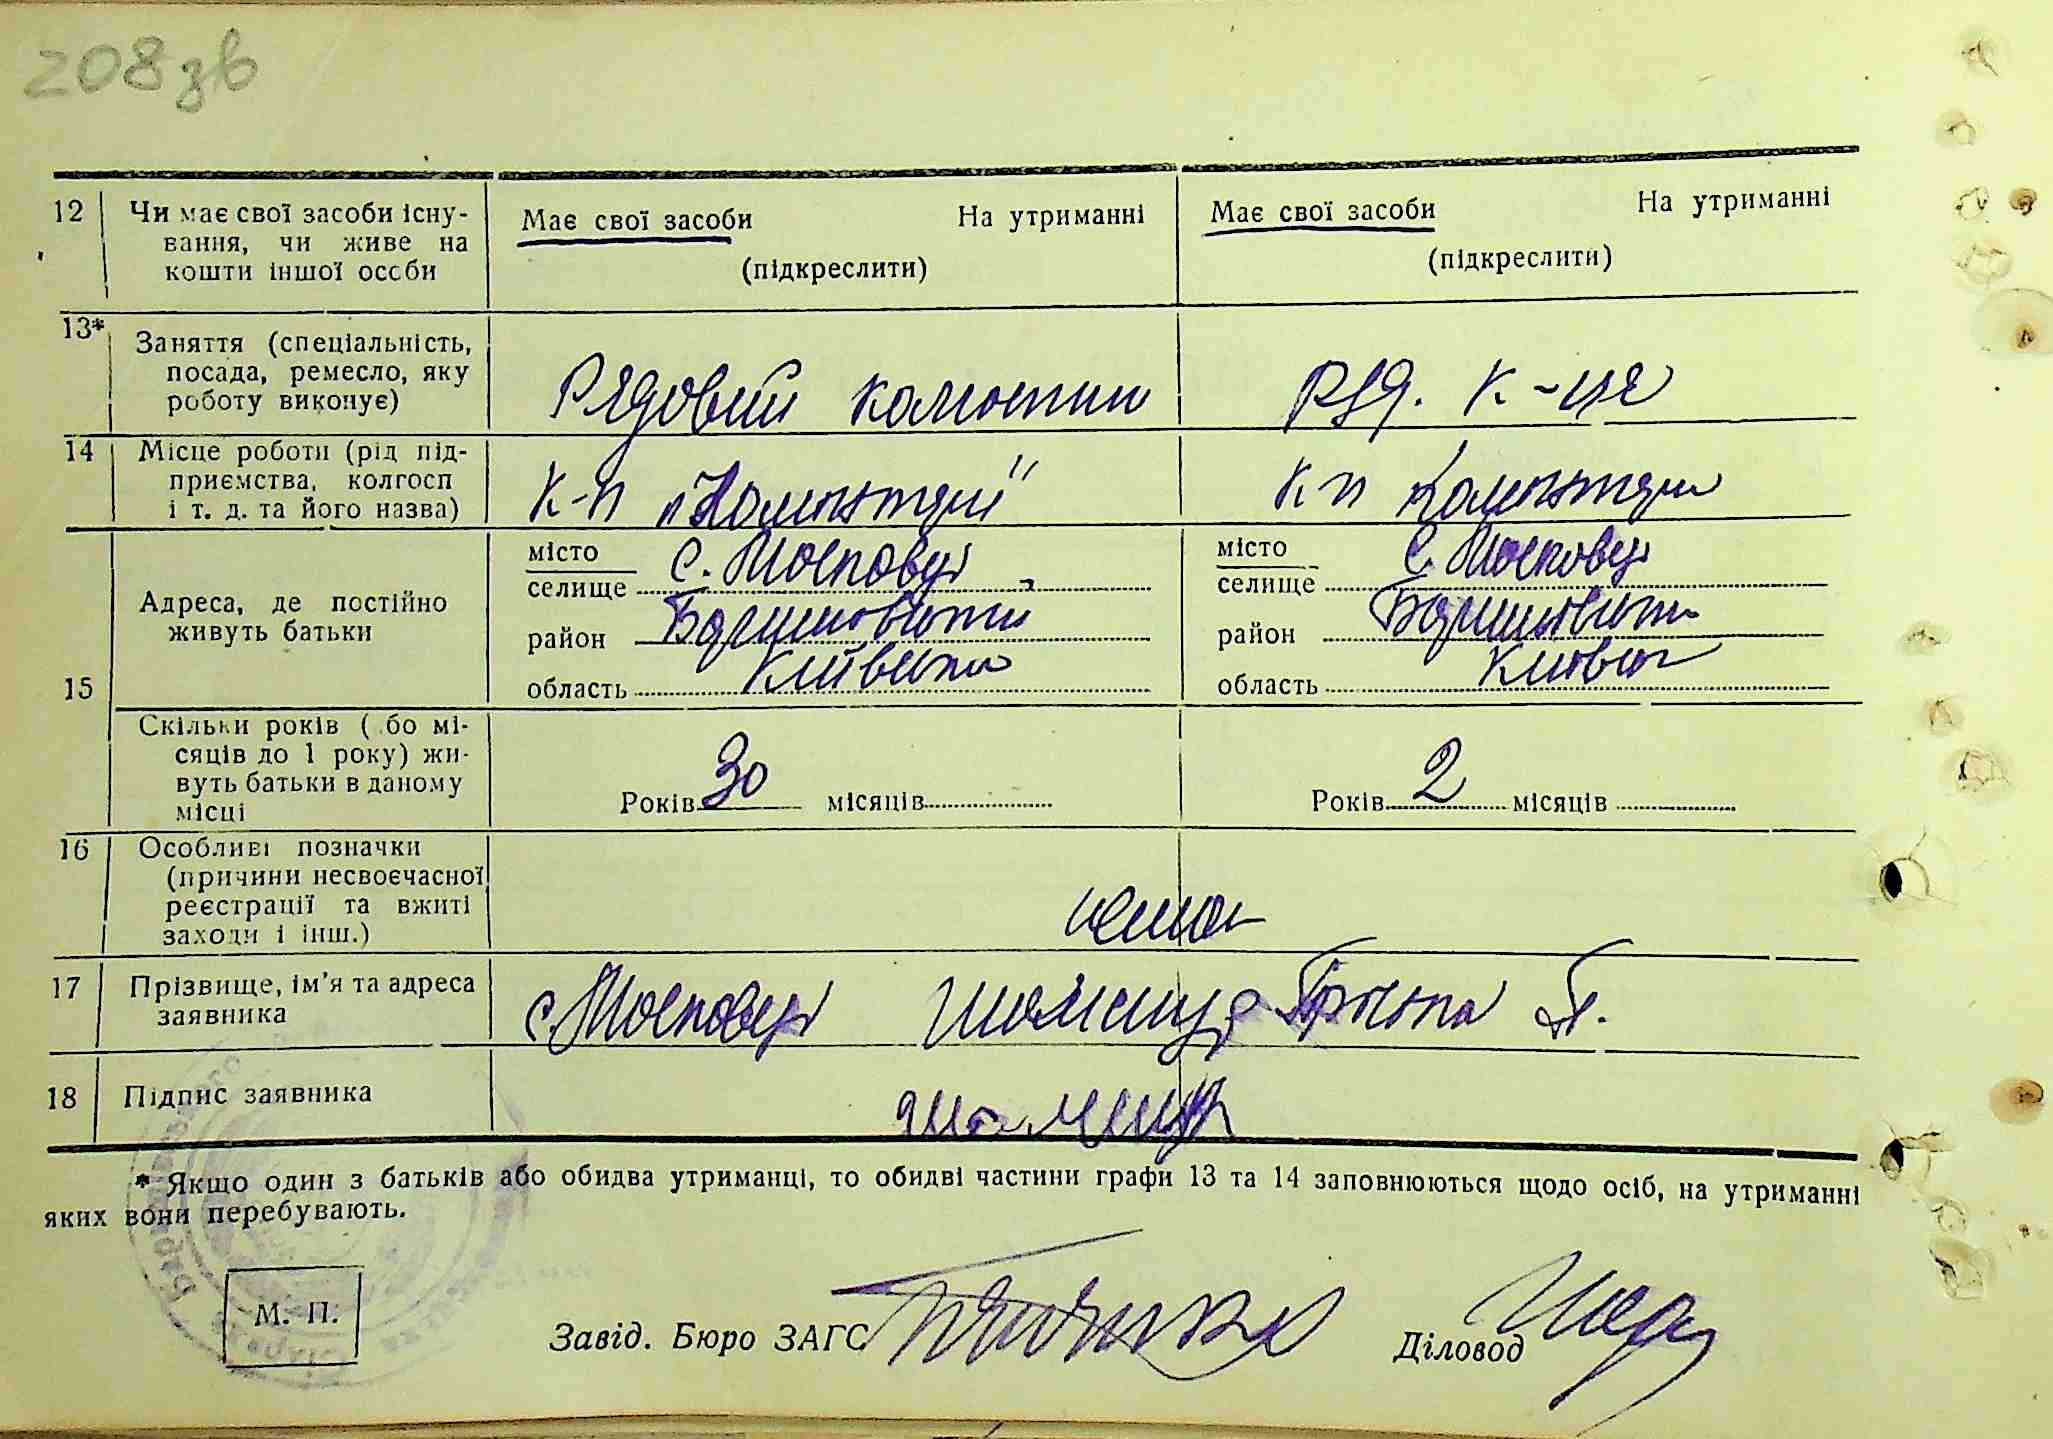 208 зв
12 Чи має свої засоби існу-
вання, чи живе на
кошти іншої особи
Має свої засоби На утриманні
(підкреслити)
Має свої засоби На утриманні
(підкреслити)
13* Заняття (спеціальність,
посада, ремесло, яку
роботу виконує)
Рядовий
Ряд. к-ця
14 Місце роботи (рід під-
приємства, колгосп
і т. д. та його назва)
К-п "Комінтерн"
К-п Комінтерн
15 Адреса, де постійно
живуть батьки
місто
селище с. Мосповці
район
область Київська
місто
селище с. Мосповці
район
область Київська
Скільки років (або мі-
сяців до 1 року) жи-
вуть батьки в даному
місці
Років 30 місяців
Років 2 місяців
16 Особливі позначки
(причини несвоєчасної
реєстрації та вжиті
заходи і інш.)
нема
17 Прізвище, ім'я та адреса
заявника
с. Мосповці П.
18 Підпис заявника
* Якщо один з батьків або обидва утриманці, то обидві частини графи 13 та 14 заповнюються щодо осіб, на утриманні
яких вони перебувають.
М. П.
Завід. Бюро ЗАГС
Діловод